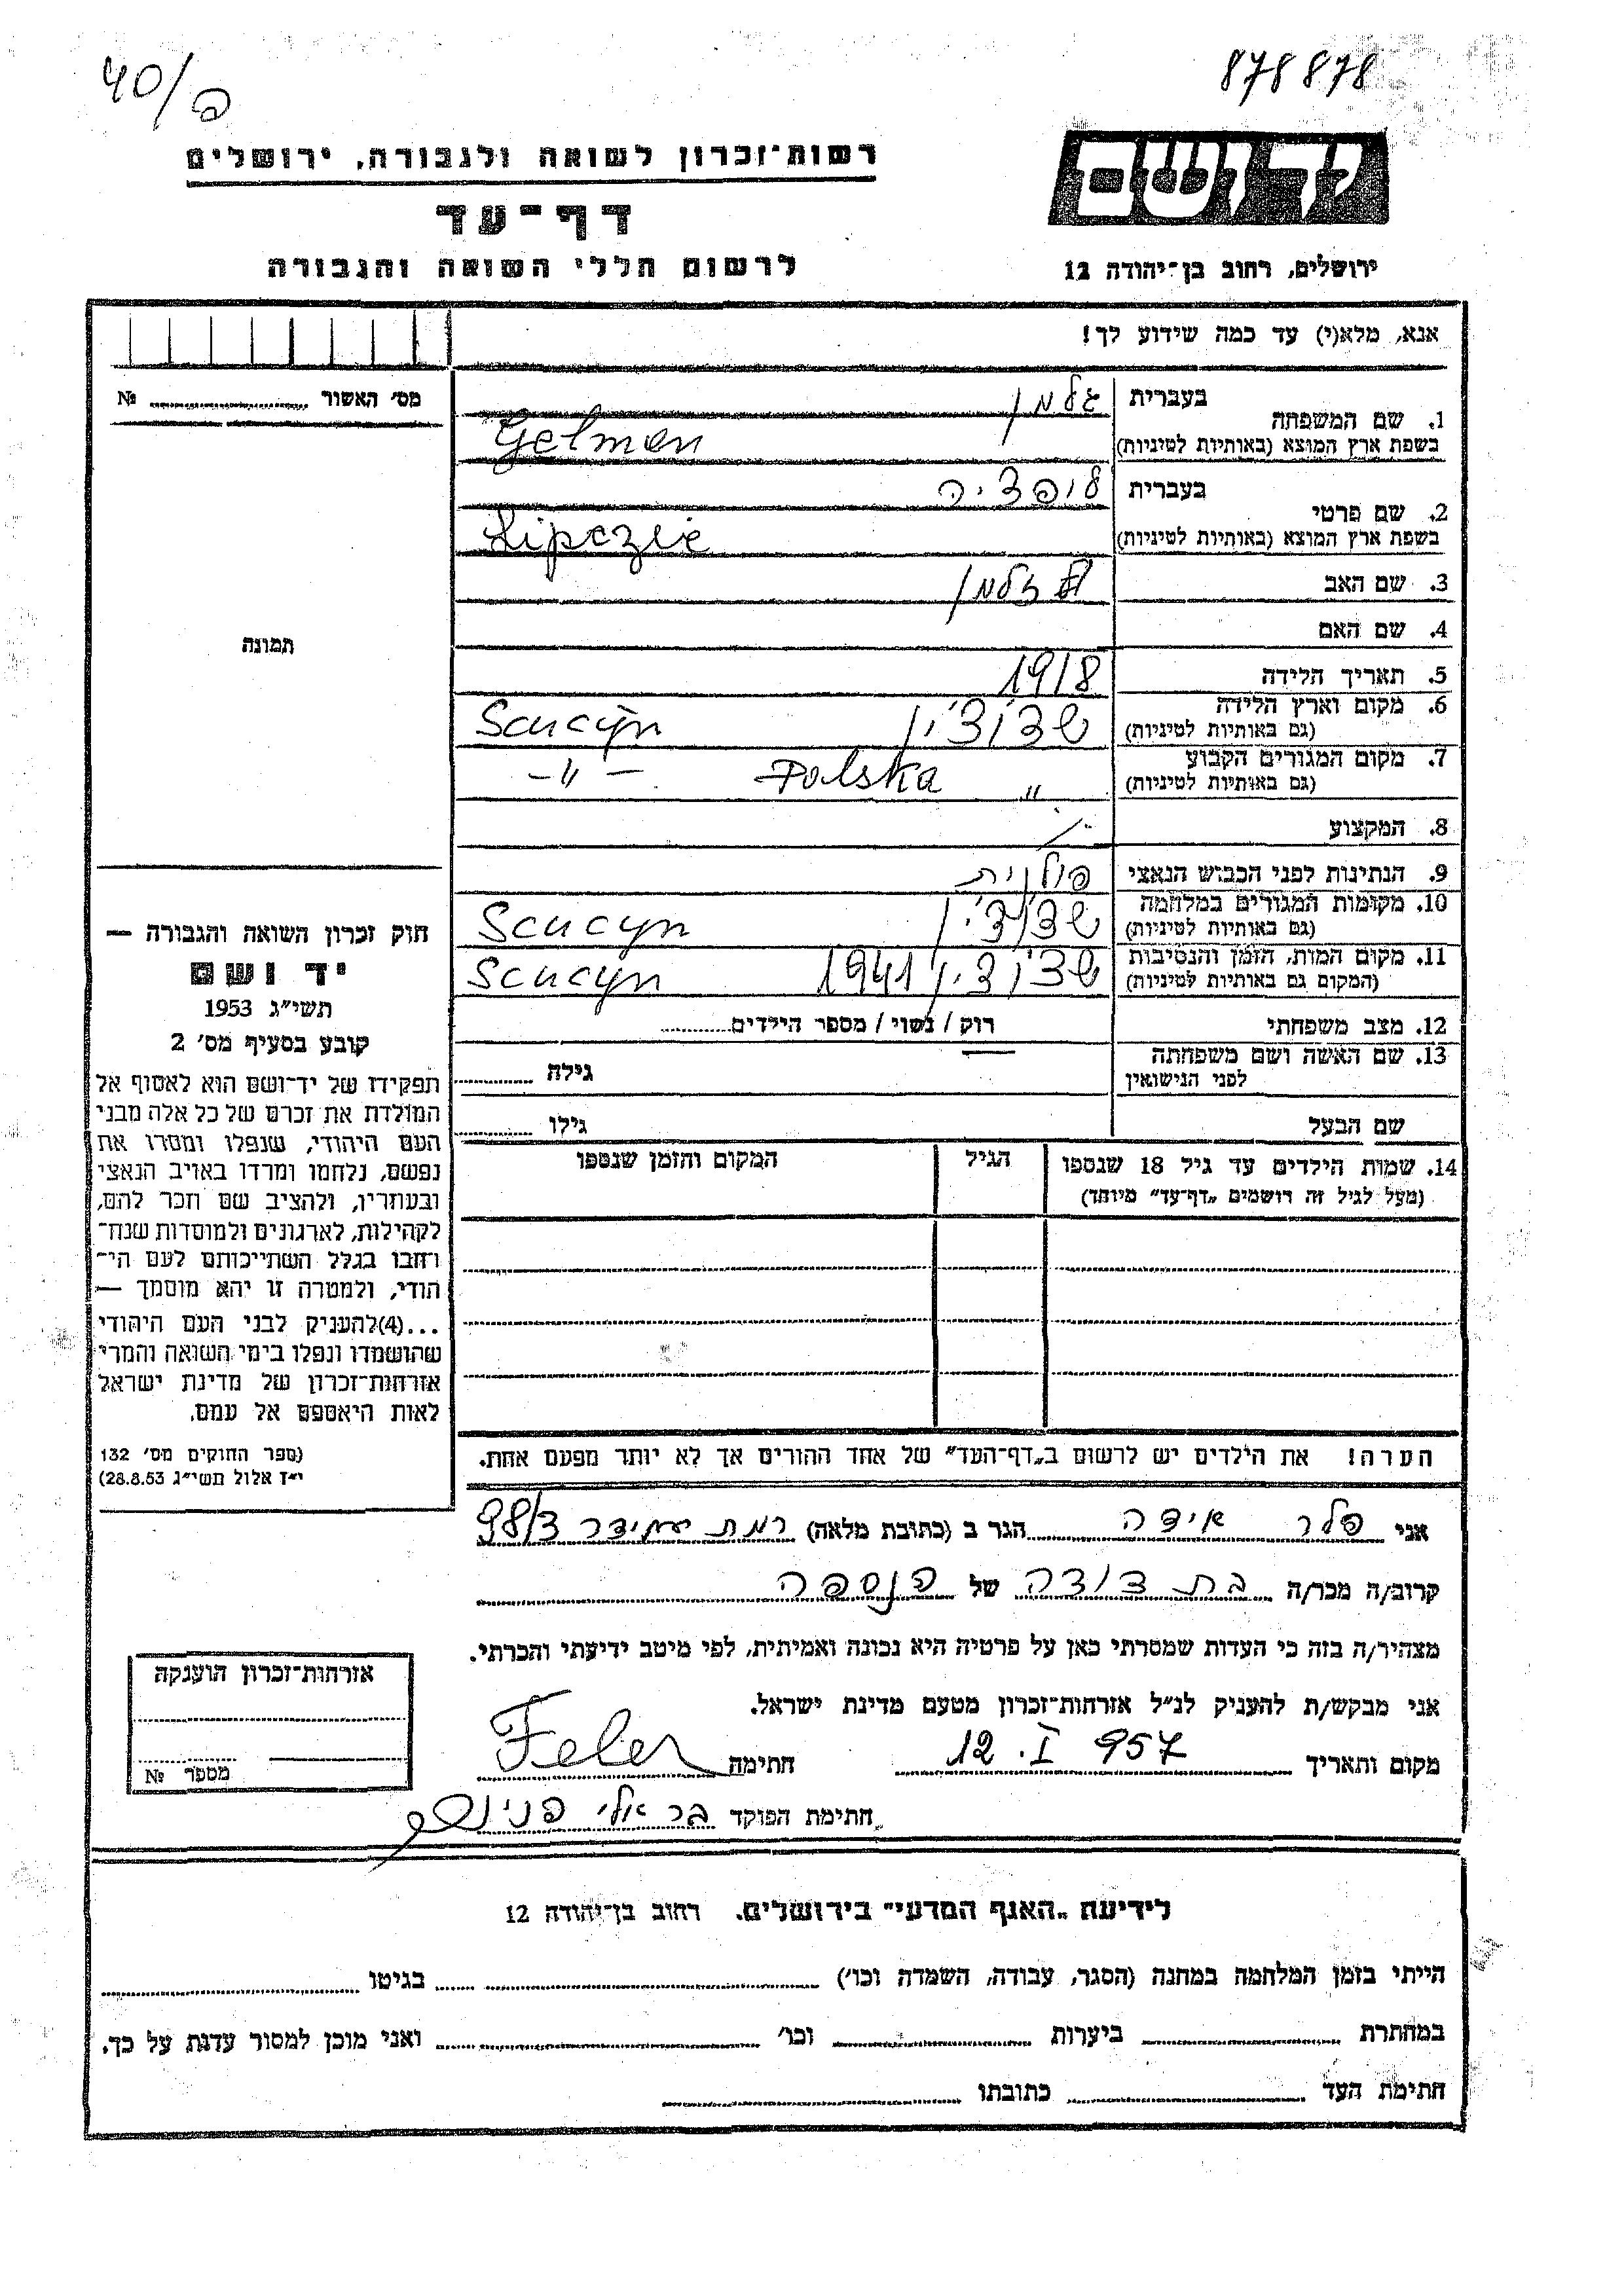 40/ם
878878
יד ושם
רשות־זכרון לשואה ולגבורה, ירושלים
דף־עד
לרשום חללי השואה והגבורה
ירושלים, רחוב בן־יהודה 12
אנא, מלא(י) עד כמה שידוע לך!
מס׳ האשור № 
1. שם המשפחה בעברית גלמן
בשפת ארץ המוצא (באותיות לטיניות) Gelmen
2. שם פרטי בעברית ליפציה
בשפת ארץ המוצא (באותיות לטיניות) Lipczie
3. שם האב זלמן
4. שם האם
5. תאריך הלידה 1918
6. מקום וארץ הלידה שצ׳וצ׳ין Scucyn
(גם באותיות לטיניות)
7. מקום המגורים הקבוע
(גם באותיות לטיניות) " Polska –"–
8. המקצוע
9. הנתינות לפני הכבוש הנאצי פולנית
10. מקומות המגורים במלחמה שצ׳וצ׳ין Scucyn
(גם באותיות לטיניות)
11. מקום המות, הזמן והנסיבות שצ׳וצ׳ין 1941 Scucyn
(המקום גם באותיות לטיניות)
12. מצב משפחתי רוק / נשוי / מספר הילדים
13. שם האשה ושם משפחתה
לפני הנישואין גילה
שם הבעל גילו
14. שמות הילדים עד גיל 18 שנספו הגיל המקום והזמן שנספו
(מעל לגיל זה רושמים „דף־עד״ מיוחד)
הערה! את הילדים יש לרשום ב„דף־העד״ של אחד ההורים אך לא יותר מפעם אחת.
תמונה
חוק זכרון השואה והגבורה —
יד ושם
תשי״ג 1953
קובע בסעיף מס׳ 2
תפקידו של יד־ושם הוא לאסוף אל
המולדת את זכרם של כל אלה מבני
העם היהודי, שנפלו ומסרו את
נפשם, נלחמו ומרדו באויב הנאצי
ובעוזריו, ולהציב שם וזכר להם,
לקהילות, לארגונים ולמוסדות שנח־
רבו בגלל השתייכותם לעם הי־
הודי, ולמטרה זו יהא מוסמך —
...(4)להעניק לבני העם היהודי
שהושמדו ונפלו בימי השואה והמרי
אזרחות־זכרון של מדינת ישראל
לאות היאספם אל עמם.
(ספר החוקים מס׳ 132
י״ז אלול תשי״ג 28.8.53)
אני פלר אידה הגר ב (כתובת מלאה) רמת עמידר צ/98
קרוב/ה מכר/ה בת דודה של הנספה
מצהיר/ה בזה כי העדות שמסרתי כאן על פרטיה היא נכונה ואמיתית, לפי מיטב ידיעתי והכרתי.
אני מבקש/ת להעניק לנ״ל אזרחות־זכרון מטעם מדינת ישראל.
מקום ותאריך 12. I 957 חתימה Feler
חתימת הפוקד
אזרחות־זכרון הוענקה
מספר №
לידיעת „האגף המדעי״ בירושלים. רחוב בן־יהודה 12
הייתי בזמן המלחמה במחנה (הסגר, עבודה, השמדה וכו׳) בגיטו
במחתרת ביערות וכו׳ ואני מוכן למסור עדות על כך.
חתימת העד כתובתו